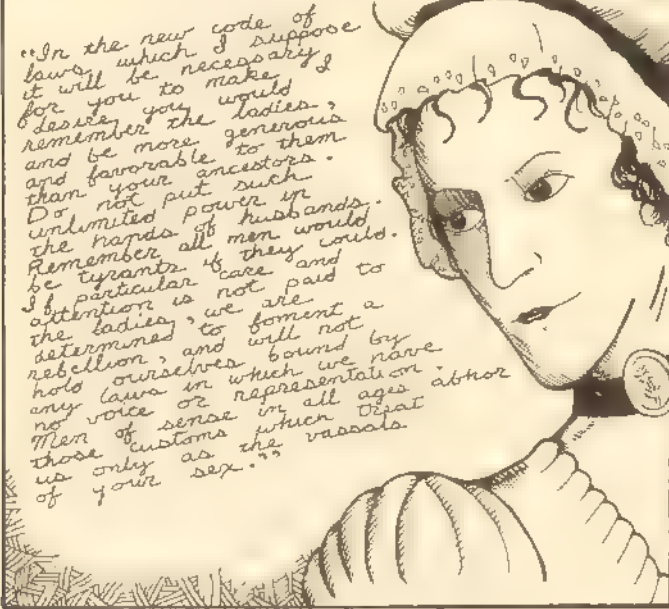 "In the new code of
laws which I suppose
it will be necessary
for you to make I
desire you would
remember the ladies,
and be more generous
and favorable to them
than your ancestors.
Do not put such
unlimited power in
the hands of husbands.
Remember all men would
be tyrants if they could.
If particular care and
attention is not paid to
the ladies, we are
determined to foment a
rebellion, and will not
hold ourselves bound by
any laws in which we have
no voice or representation.
Men of sense in all ages abhor
those customs which treat
us only as the vassals
of your sex."